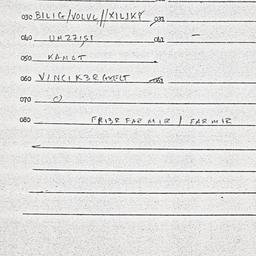 030 BILIG/VOLVL//XILIKY 031
040 UHZZISI 041 —
050 KAMOT
060 VINCIK3RGKELT
070 O
080 FRIBR FAR MIR / FAR MIR